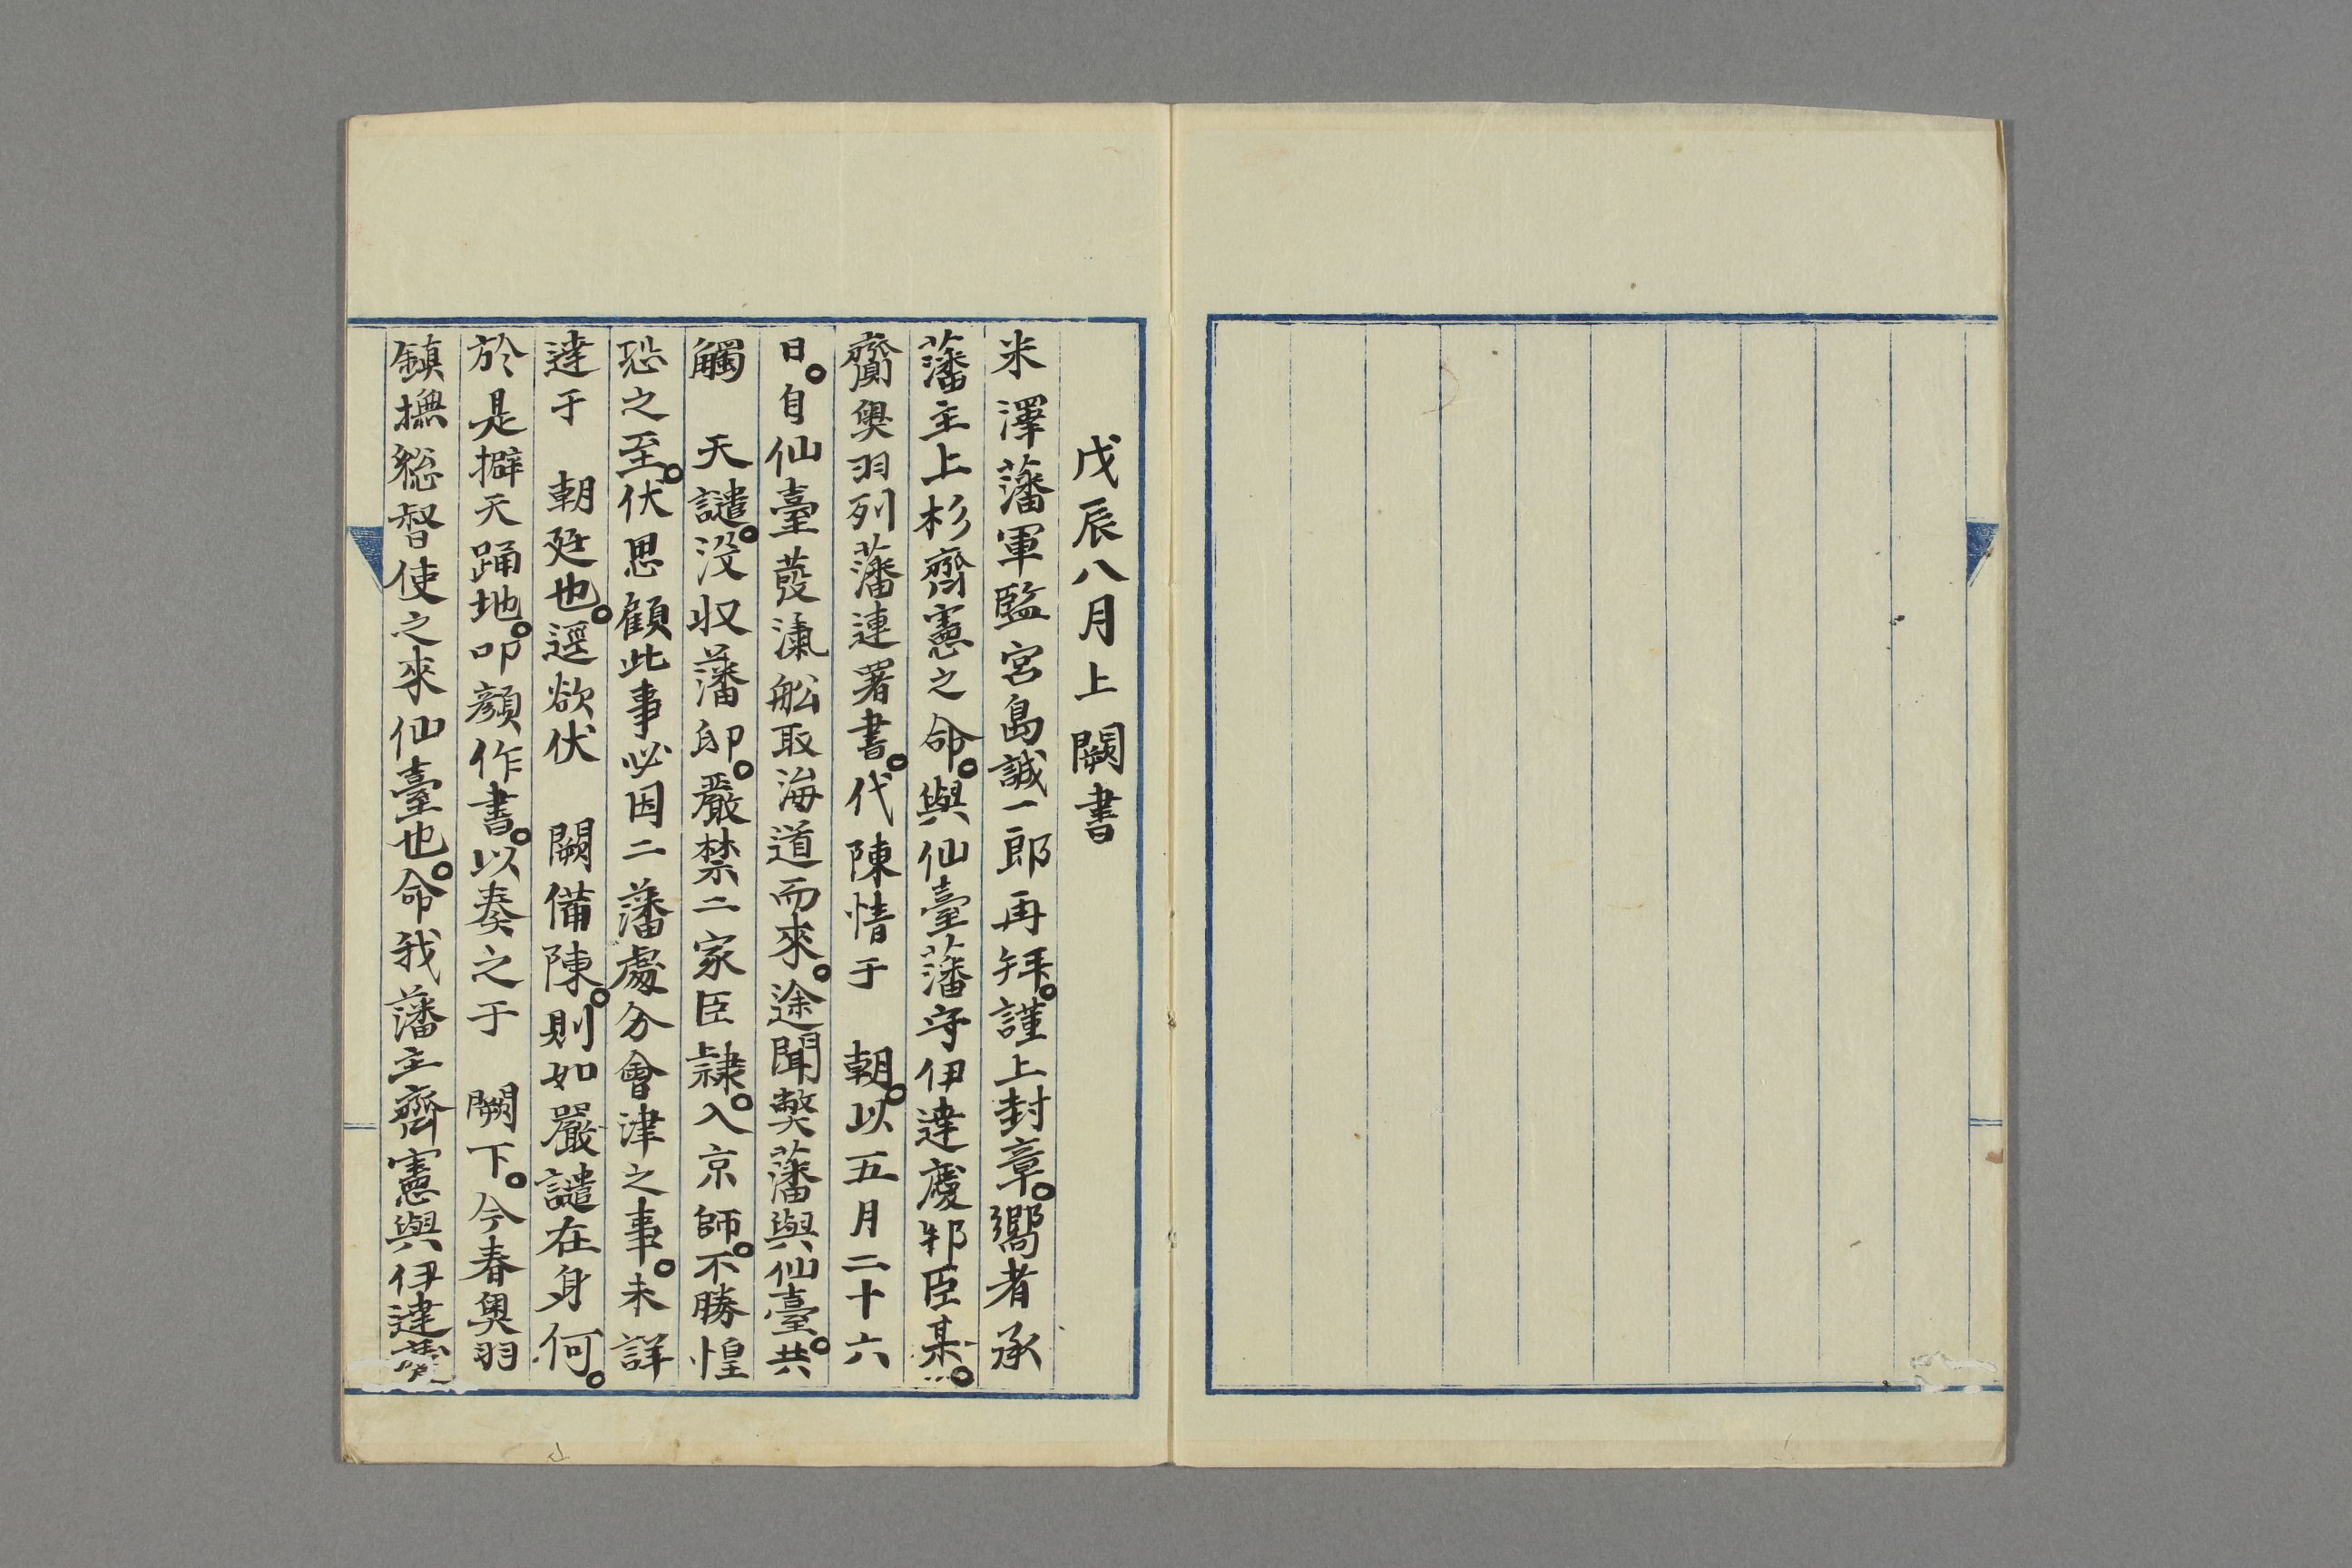 戊辰八月上闕書
米澤藩軍監宮島誠一郎再拜。謹上封章。嚮者承
藩主上杉齊憲之命。與仙臺藩守伊達慶邦臣某。
齎奧羽列藩連署書。代陳情于　朝。以五月二十六
日。自仙臺發滊舩取海道而來。途聞獘藩與仙臺。共
觸　天譴。沒收藩邸。嚴禁二家臣隷。入京師。不勝惶
恐之至。伏思顧此事必因二藩處分會津之事。未詳
達于　朝廷也。逕欲伏　闕備陳。則如嚴譴在身何。
於是擗天踊地。叩顏作書。以奏之于　闕下。今春奧羽
鎮撫總督使之來仙臺也。命我藩主齊憲與伊達慶